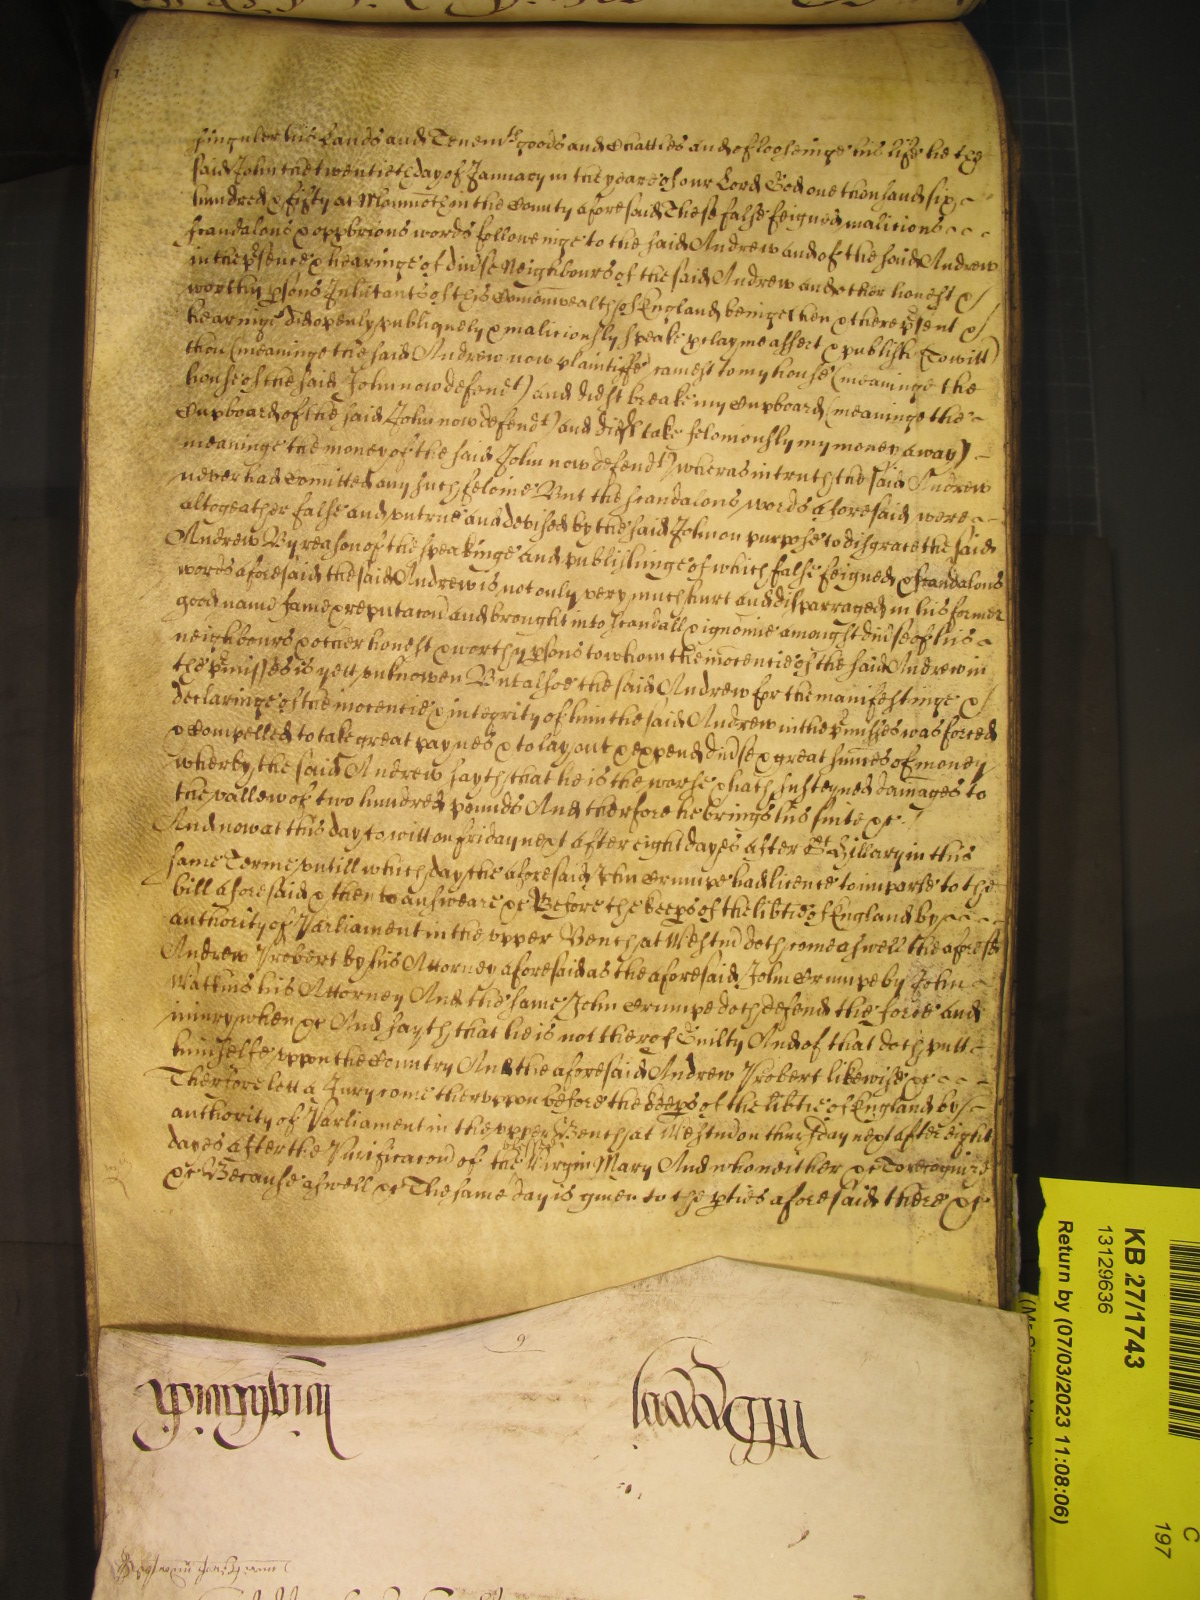 singuler his Lands and Tenemts goods and Chattles and of looseinge his life he the
said John the twentieth day of January in the yeare of our Lord God one thousand six
hundred & fifty at Monmoth in the County aforesaid These false feigned malicious
scandalous & opprbrious words followeinge to the said Andrew and of the said Andrew
in the psence & hearinge of divse Neighbours of the said Andrew and other honest &
worthy psons Inhitants of this Comonwealth of England beinge then & there psent &
hearinge did openly publiquely & maliciously speake pclayme assert & publish (To witt)
thou (meaninge the said Andrew now plaintiffe) camest to my house (meaninge the
house of the said John now defendt) and didst breake my Cupboard (meaninge the
Cupboard of the said John now defendt) and didst take feloniously my money away)
meaninge the money of the said John now defendt) wheras in truth the said Andrew
never had Comitted any such felonie But the scandalous words aforesaid were
altogeather false and untrue and devised by the said John on purpose to disgrace the said
Andrew By reason of the speakinge and publishinge of which false feigned & scandalous
words aforesaid the said Andrew is not only very much hurt and disparraged in his former
good name fame & reputacon and brought into scandall & ignomie amongst divse of his
neighbours & other honest & worthy psons to whom the inocencie of the said Andrew in
the pmisses is yett unknowen But alsoe the said Andrew for the manifestinge &
declaringe of the inocencie & integrity of him the said Andrew in the pmisses was forced
& Compelled to take great paynes & to lay out & expend divse & great sumes of money
wherby the said Andrew sayth that he is the worse & hath susteyned damages to
the vallew of two hundred pounds And therfore he brings his suite &c
And now at this day to witt on Friday next after eight dayes after St Hillary in this
same Terme untill which day the aforesaid John Crumpe had licence to imparle to the
bill aforesaid & then to answeare &c Before the keeps of the libtie of England by
authority of Parliament in the upper Bench at Westm doth come aswell the aforesd
Andrew Probert by his Attorney aforesaid as the aforesaid John Crumpe by John
Watkins his Attorney And the same John Crumpe doth defend the force and
iniury when &c And sayth that he is not therof Guilty And of that doth putt
himselfe uppon the Country And the aforesaid Andrew Probert likewise &c
Therfore lett a Jury come theruppon before the keeps of the libtie of England by
authority of Parliament in the upper Bench at Westm on thursday next after eight
dayes after the Purificacon of the blessed Virgin Mary And who neither &c To recognize
&c Because aswell &c The same day is given to the pties aforesaid there &c
9
KB 27/1743
13129636
Return by (07/03/2023 11:08:06)
C
197